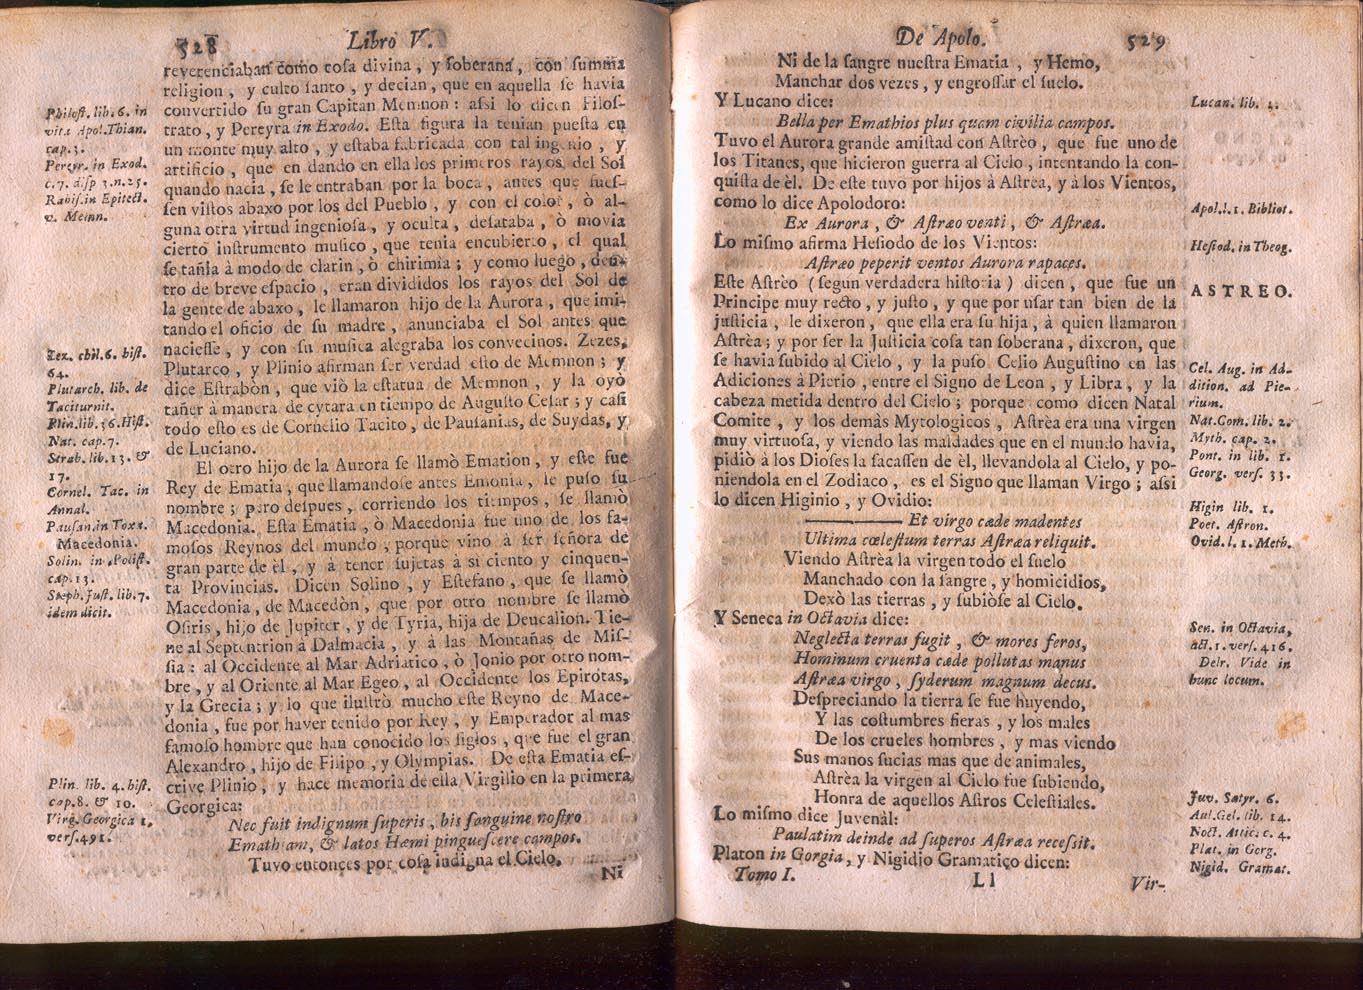 528 Libro V.
reverenciaban como cosa divina, y soberana, con summa
religion, y culto santo, y decian, que en aquella se havia
convertido su gran Capitan Memnon: assi lo dicen Filos-
trato, y Pereyra in Exodo. Esta figura la tenian puesta en
un monte muy alto, y estaba fabricada con tal ingenio, y
artificio, que en dando en ella los primeros rayos del Sol
quando nacia, se le entraban por la boca, antes que fues-
sen vistos abaxo por los del Pueblo, y con el color, ò al-
guna otra virtud ingeniosa, y oculta, desataba, ò movia
cierto instrumento musico, que tenia encubierto, el qual
se tañia à modo de clarin, ò chirimia; y como luego, den-
tro de breve espacio, eran divididos los rayos del Sol de
la gente de abaxo, le llamaron hijo de la Aurora, que imi-
tando el oficio de su madre, anunciaba el Sol antes que
naciesse, y con su musica alegraba los convecinos. Zezes,
Plutarco, y Plinio afirman ser verdad esto de Memnon; y
dice Estrabòn, que viò la estatua de Memnon, y la oyò
tañer à manera de cytara en tiempo de Augusto Cesar; y casi
todo esto es de Cornelio Tacito, de Pausanias, de Suydas, y
de Luciano.
El otro hijo de la Aurora se llamò Emation, y este fue
Rey de Ematia, que llamandose antes Emonia, le puso su
nombre; pero despues, corriendo los tiempos, se llamò
Macedonia. Esta Ematia, ò Macedonia fue uno de los fa-
mosos Reynos del mundo, porque vino à ser señora de
gran parte de èl, y à tener sujetas à sì ciento y cinquen-
ta Provincias. Dicen Solino, y Estefano, que se llamò
Macedonia, de Macedòn, que por otro nombre se llamò
Osiris, hijo de Jupiter, y de Tyria, hija de Deucalion. Tie-
ne al Septentrion à Dalmacia, y à las Montañas de Mis-
sia: al Occidente al Mar Adriatico, ò Jonio por otro nom-
bre, y al Oriente al Mar Egeo, al Occidente los Epirotas,
y la Grecia; y lo que ilustrò mucho este Reyno de Mace-
donia, fue por haver tenido por Rey, y Emperador al mas
famoso hombre que han conocido los siglos, que fue el gran
Alexandro, hijo de Filipo, y Olympias. De esta Ematia es-
crive Plinio, y hace memoria de ella Virgilio en la primera
Georgica:
Nec fuit indignum superis, bis sanguine nostro
Emathiam, & latos Hæmi pinguescere campos.
Tuvo entonces por cosa indigna el Cielo,
Ni
Philost. lib. 6. in
vita Apol. Thian.
cap. 3.
Pereyr. in Exod.
c. 7. disp 3. n. 25.
Rabis. in Epitect.
v. Memn.
Zez. chil. 6. hist.
64.
Plutarch. lib. de
Taciturnit.
Plin. lib. 36. Hist.
Nat. cap. 7.
Strab. lib. 13. &
17.
Cornel. Tac. in
Annal.
Pausan. in
Macedonia.
Solin. in Polist.
cap. 13.
Steph. Just. lib. 7.
idem dicit.
Plin. lib. 4. hist.
cap. 8. & 10.
Virg. Georgica 1.
vers. 491.
De Apolo. 529
Ni de la sangre nuestra Ematia, y Hemo,
Manchar dos vezes, y engrossar el suelo.
Y Lucano dice:
Bella per Emathios plus quam civilia campos.
Tuvo el Aurora grande amistad con Astrèo, que fue uno de
los Titanes, que hicieron guerra al Cielo, intentando la con-
quista de èl. De este tuvo por hijos à Astrèa, y à los Vientos,
como lo dice Apolodoro:
Ex Aurora, & Astræo venti, & Astræa.
Lo mismo afirma Hesiodo de los Vientos:
Astræo peperit ventos Aurora rapaces.
Este Astrèo (segun verdadera historia) dicen, que fue un
Principe muy recto, y justo, y que por usar tan bien de la
justicia, le dixeron, que ella era su hija, à quien llamaron
Astrèa; y por ser la Justicia cosa tan soberana, dixeron, que
se havia subido al Cielo, y la puso Celio Augustino en las
Adiciones à Pierio, entre el Signo de Leon, y Libra, y la
cabeza metida dentro del Cielo; porque como dicen Natal
Comite, y los demàs Mytologicos, Astrèa era una virgen
muy virtuosa, y viendo las maldades que en el mundo havia,
pidiò à los Dioses la sacassen de èl, llevandola al Cielo, y po-
niendola en el Zodiaco, es el Signo que llaman Virgo; assi
lo dicen Higinio, y Ovidio:
Et virgo cæde madentes
Ultima cœlestum terras Astræa reliquit.
Viendo Astrèa la virgen todo el suelo
Manchado con la sangre, y homicidios,
Dexò las tierras, y subiòse al Cielo.
Y Seneca in Octavia dice:
Neglecta terras fugit, & mores feros,
Hominum cruenta cæde pollutas manus
Astræa virgo, syderum magnum decus.
Despreciando la tierra se fue huyendo,
Y las costumbres fieras, y los males
De los crueles hombres, y mas viendo
Sus manos sucias mas que de animales,
Astrèa la virgen al Cielo fue subiendo,
Honra de aquellos Astros Celestiales.
Lo mismo dice Juvenàl:
Paulatim deinde ad superos Astræa recessit.
Platon in Gorgia, y Nigidio Gramatico dicen:
Tomo I. Ll Vir-
Lucan. lib. 1.
Apol. l. 1. Bibliot.
Hesiod. in Theog.
ASTREO.
Cel. Aug. in Ad-
dition. ad Pie-
rium.
Nat. Com. lib. 2.
Myth. cap. 2.
Pont. in lib. 1.
Georg. vers. 33.
Higin lib. 1.
Poet. Astron.
Ovid. l. 1. Meth.
Sen. in Octavia,
act. 1. vers. 416.
Delr. Vide in
hunc locum.
Juv. Satyr. 6.
Aul. Gel. lib. 14.
Noct. Attic. c. 4.
Plat. in Gorg.
Nigid. Gramat.